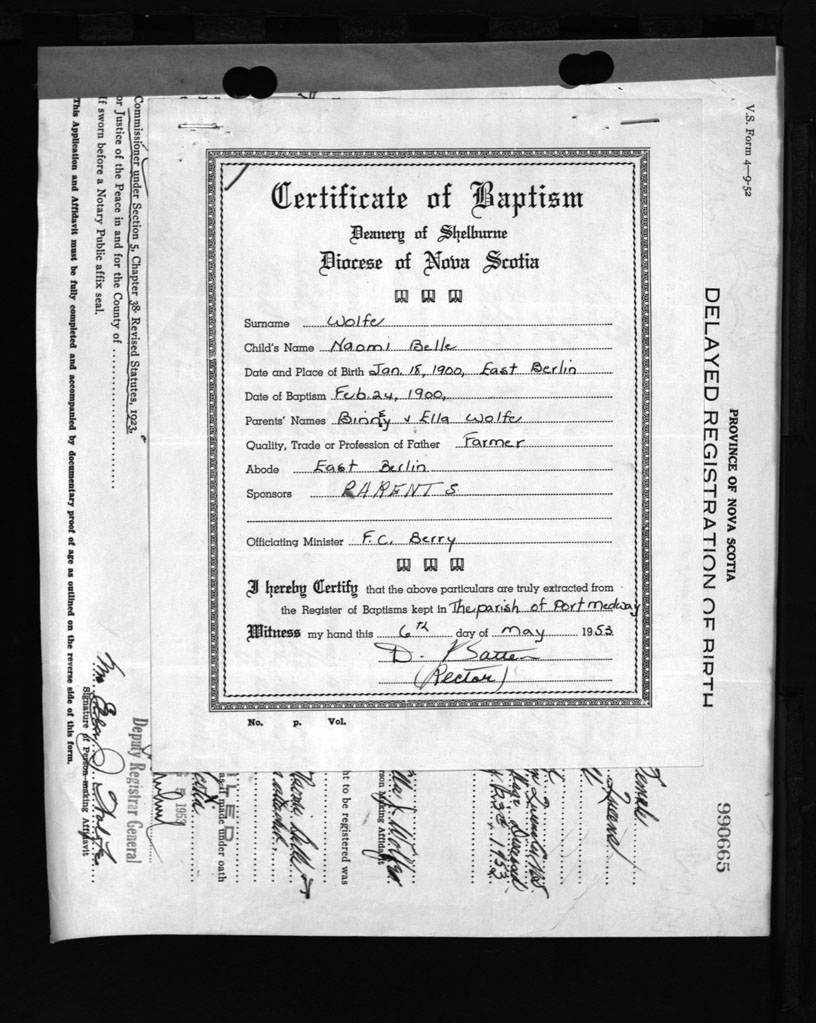 Certificate of Baptism
Deanery of Shelburne
Diocese of Nova Scotia
Surname Wolfe
Child's Name Naomi Belle
Date and Place of Birth Jan. 18, 1900, East Berlin
Date of Baptism Feb. 24, 1900,
Parents' Names Binny & Ella Wolfe
Quality, Trade or Profession of Father Farmer
Abode East Berlin
Sponsors PARENTS
Officiating Minister F.C. Berry
I hereby Certify that the above particulars are truly extracted from
the Register of Baptisms kept in The parish of Port Medway
Witness my hand this 6th day of May 1953
D. Batten
(Rector)
No. p. Vol.
V.S. Form 4—9-52
PROVINCE OF NOVA SCOTIA
DELAYED REGISTRATION OF BIRTH
990665
Female
Queens
ht to be registered was
rson Making Affidavit
as if made under oath
Deputy Registrar General
Commissioner under Section 5, Chapter 38 Revised Statutes, 1923,
or Justice of the Peace in and for the County of
If sworn before a Notary Public affix seal.
Signature of Person making Affidavit
This Application and Affidavit must be fully completed and accompanied by documentary proof of age as outlined on the reverse side of this form.